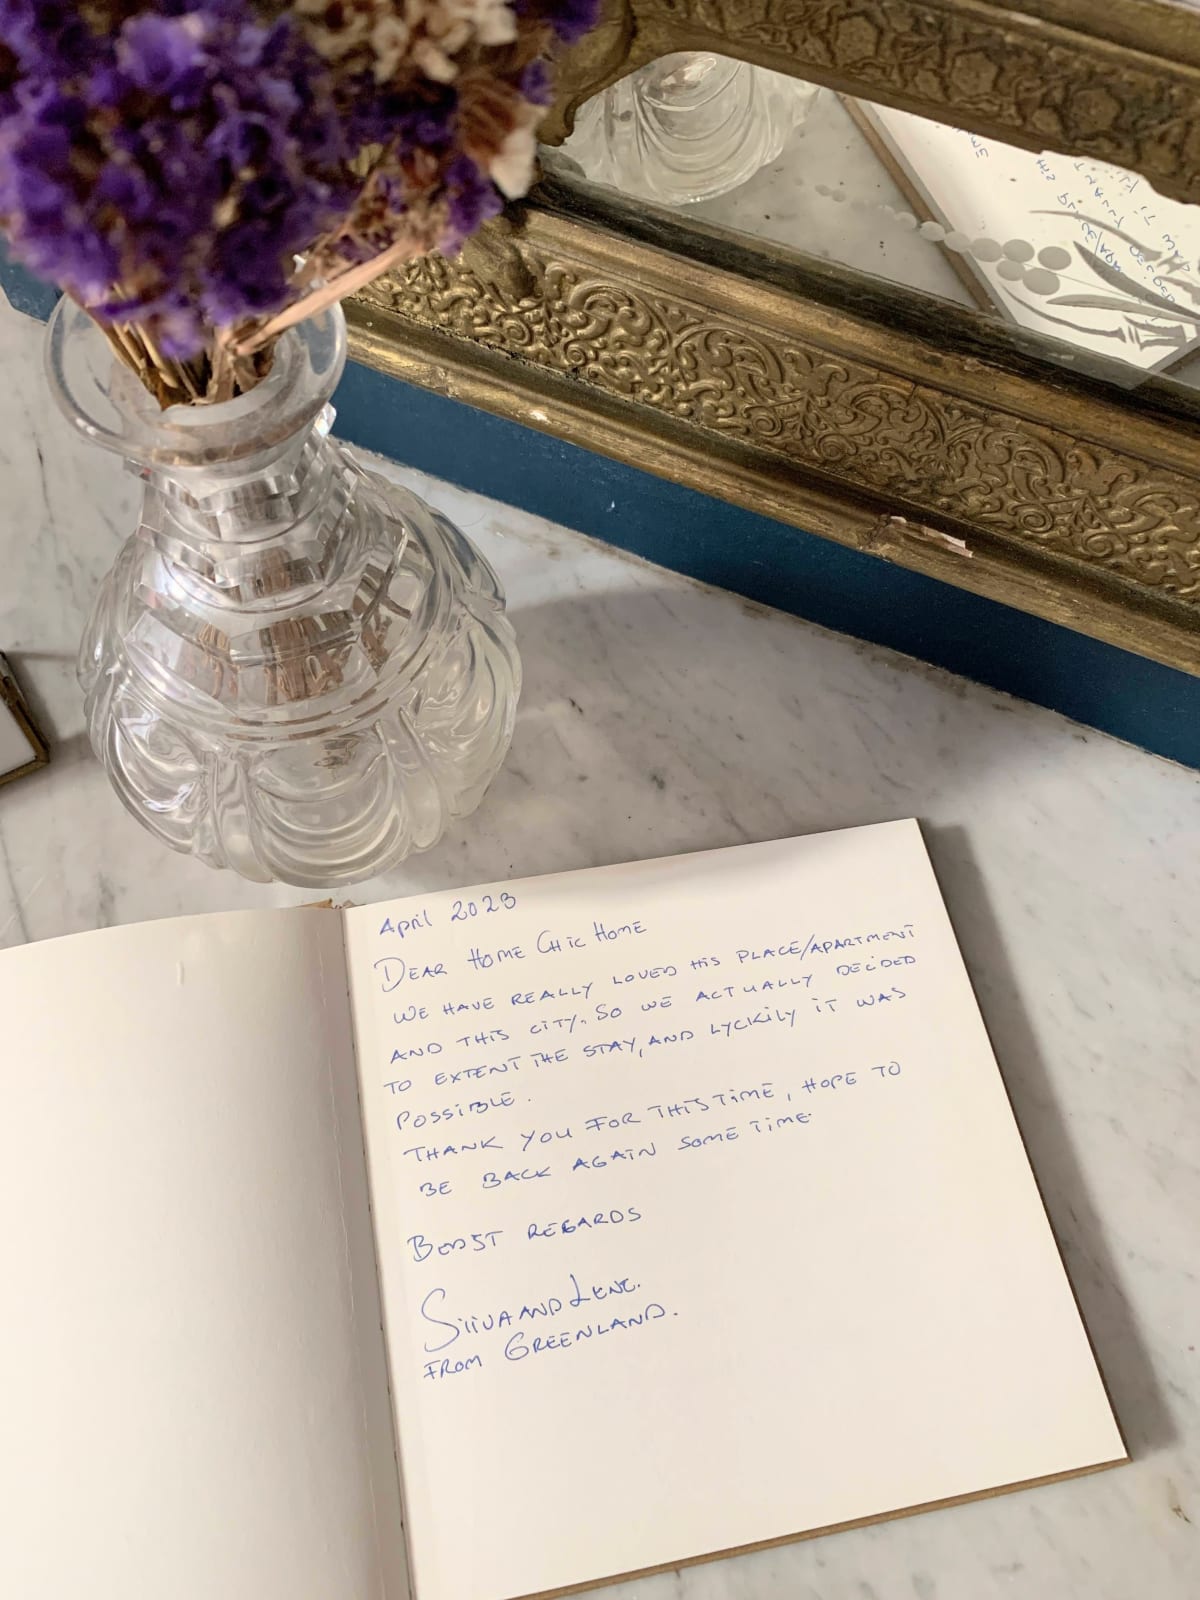 April 2023
DEAR HOME CHIC HOME
WE HAVE REALLY LOVED HIS PLACE/APARTMENT
AND THIS CITY. SO WE ACTUALLY DECIDED
TO EXTENT THE STAY, AND LYCKILY IT WAS
POSSIBLE.
THANK YOU FOR THIS TIME, HOPE TO
BE BACK AGAIN SOME TIME.
REGARDS
AND LENE.
FROM GREENLAND.